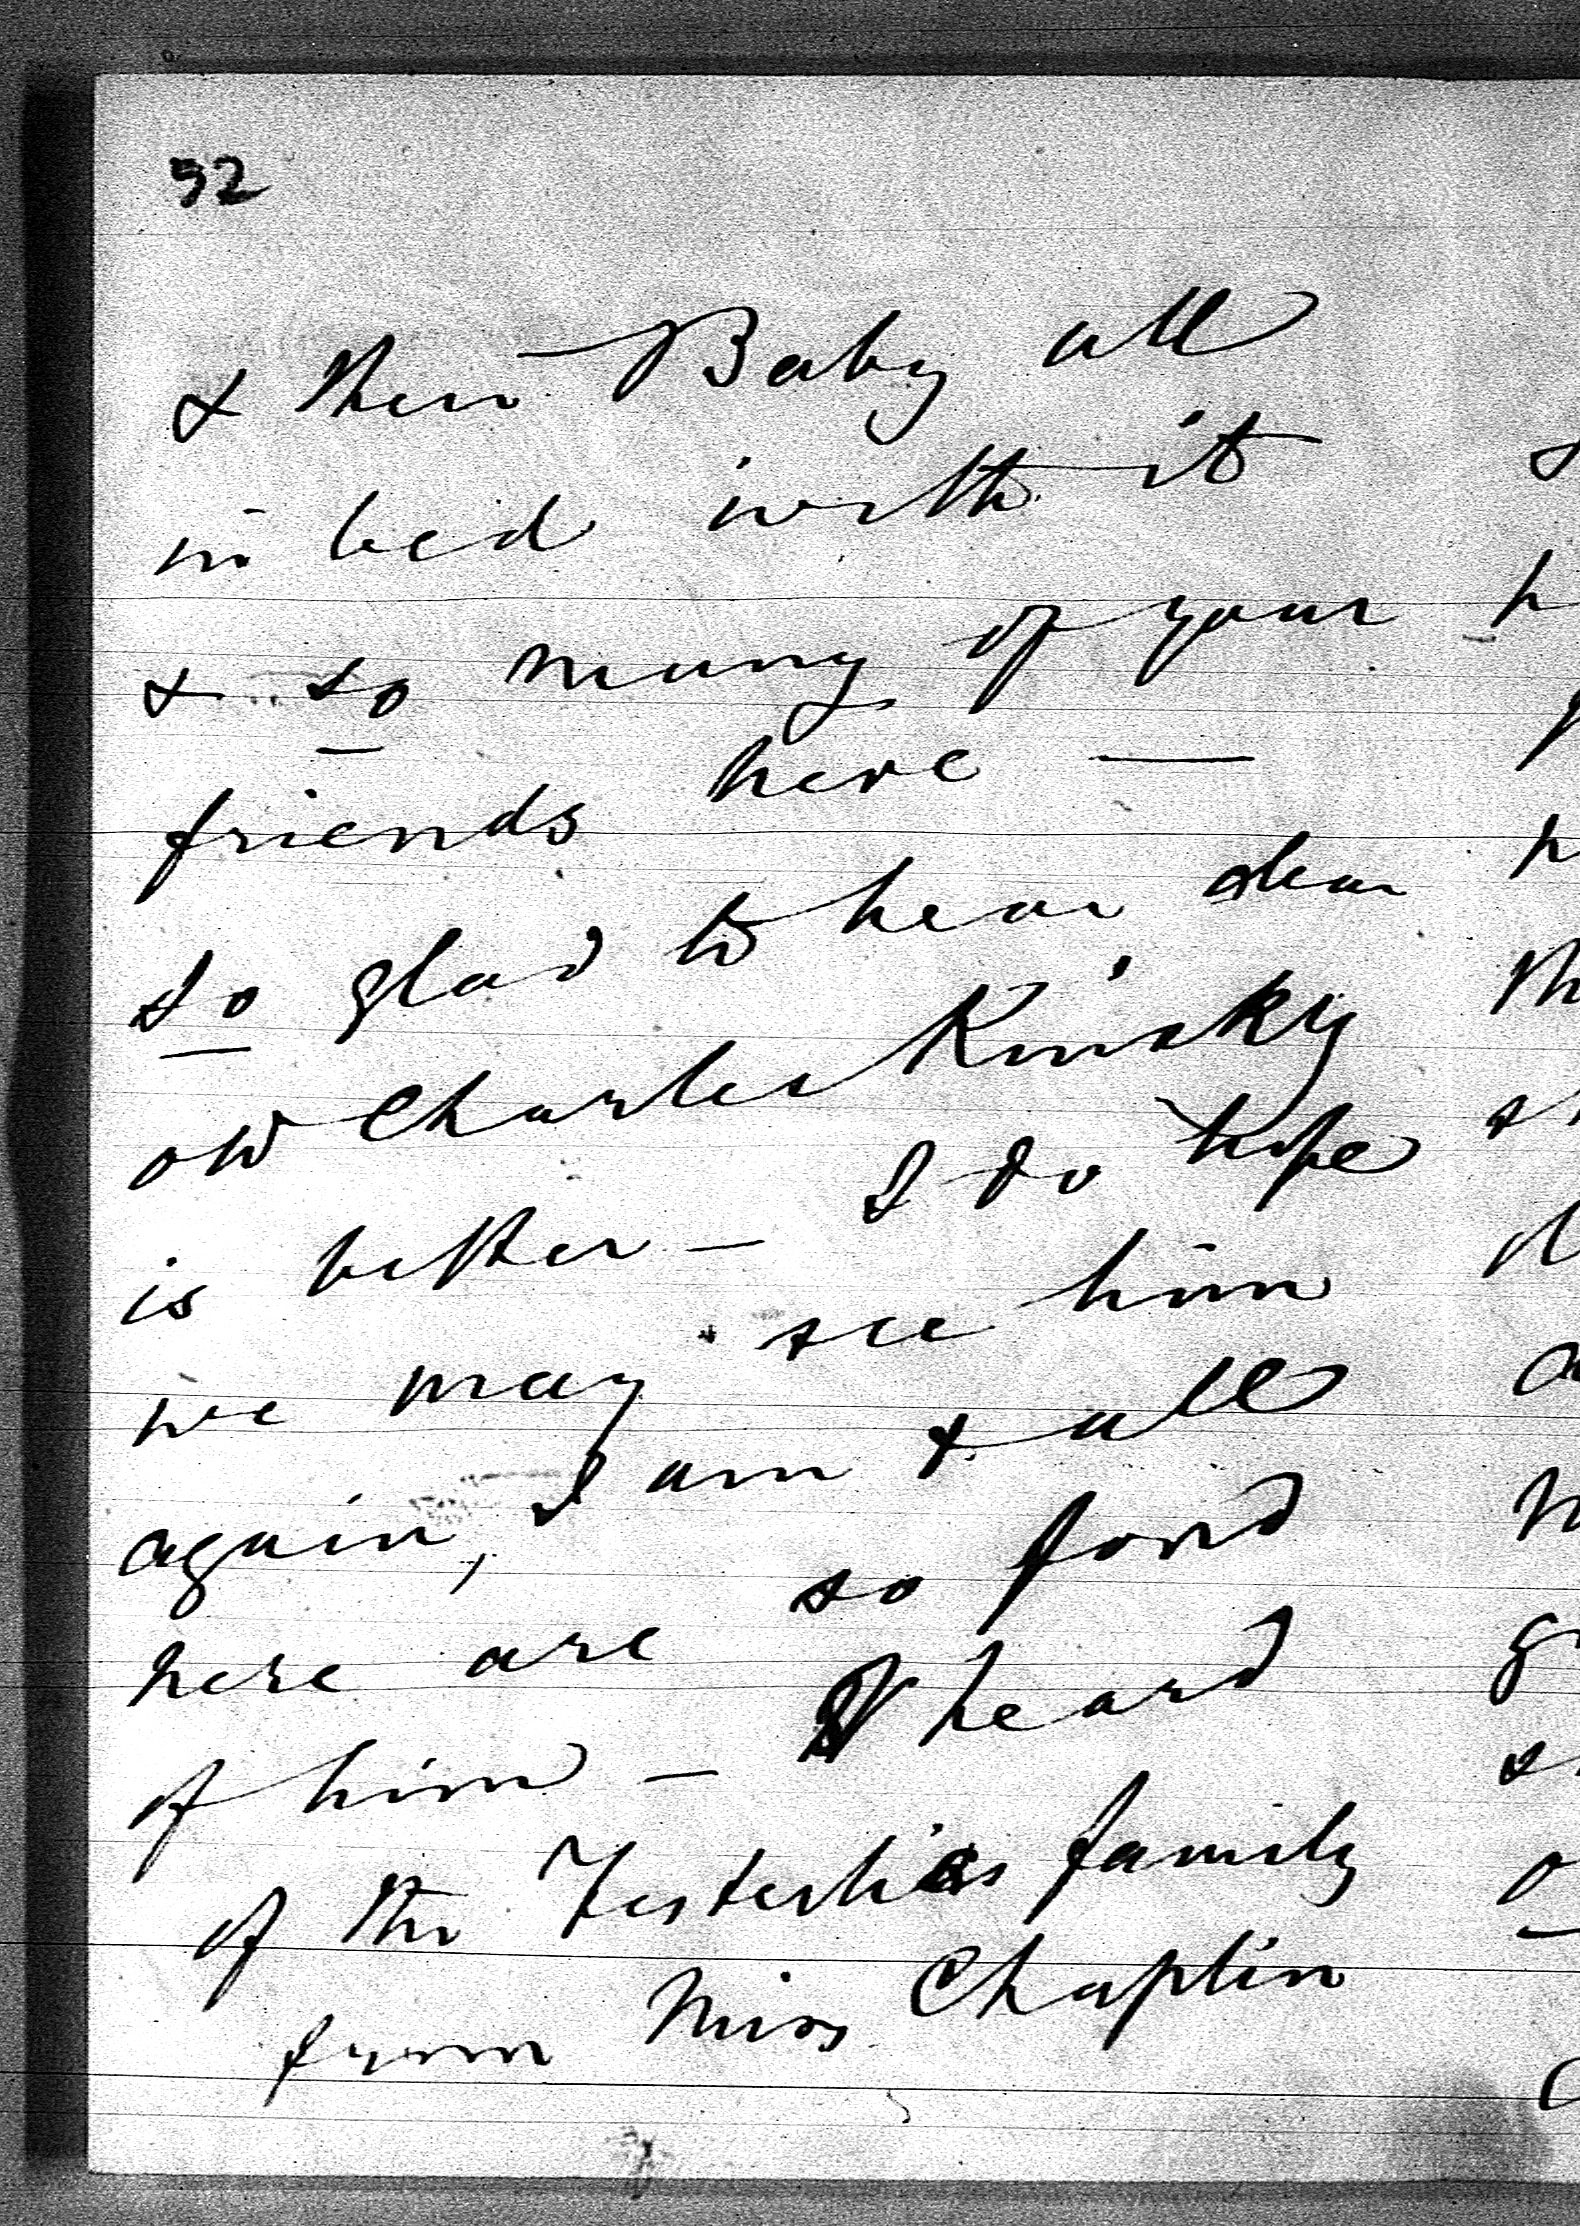 52
& their Baby all
in bed with it
& so many of your
friends here —
so glad to hear dear
old Charles Kinsky
is better — I do hope
we may see him
again, I am & all
here are so fond
of him — I heard
of the Festetics family
from Miss Chaplin